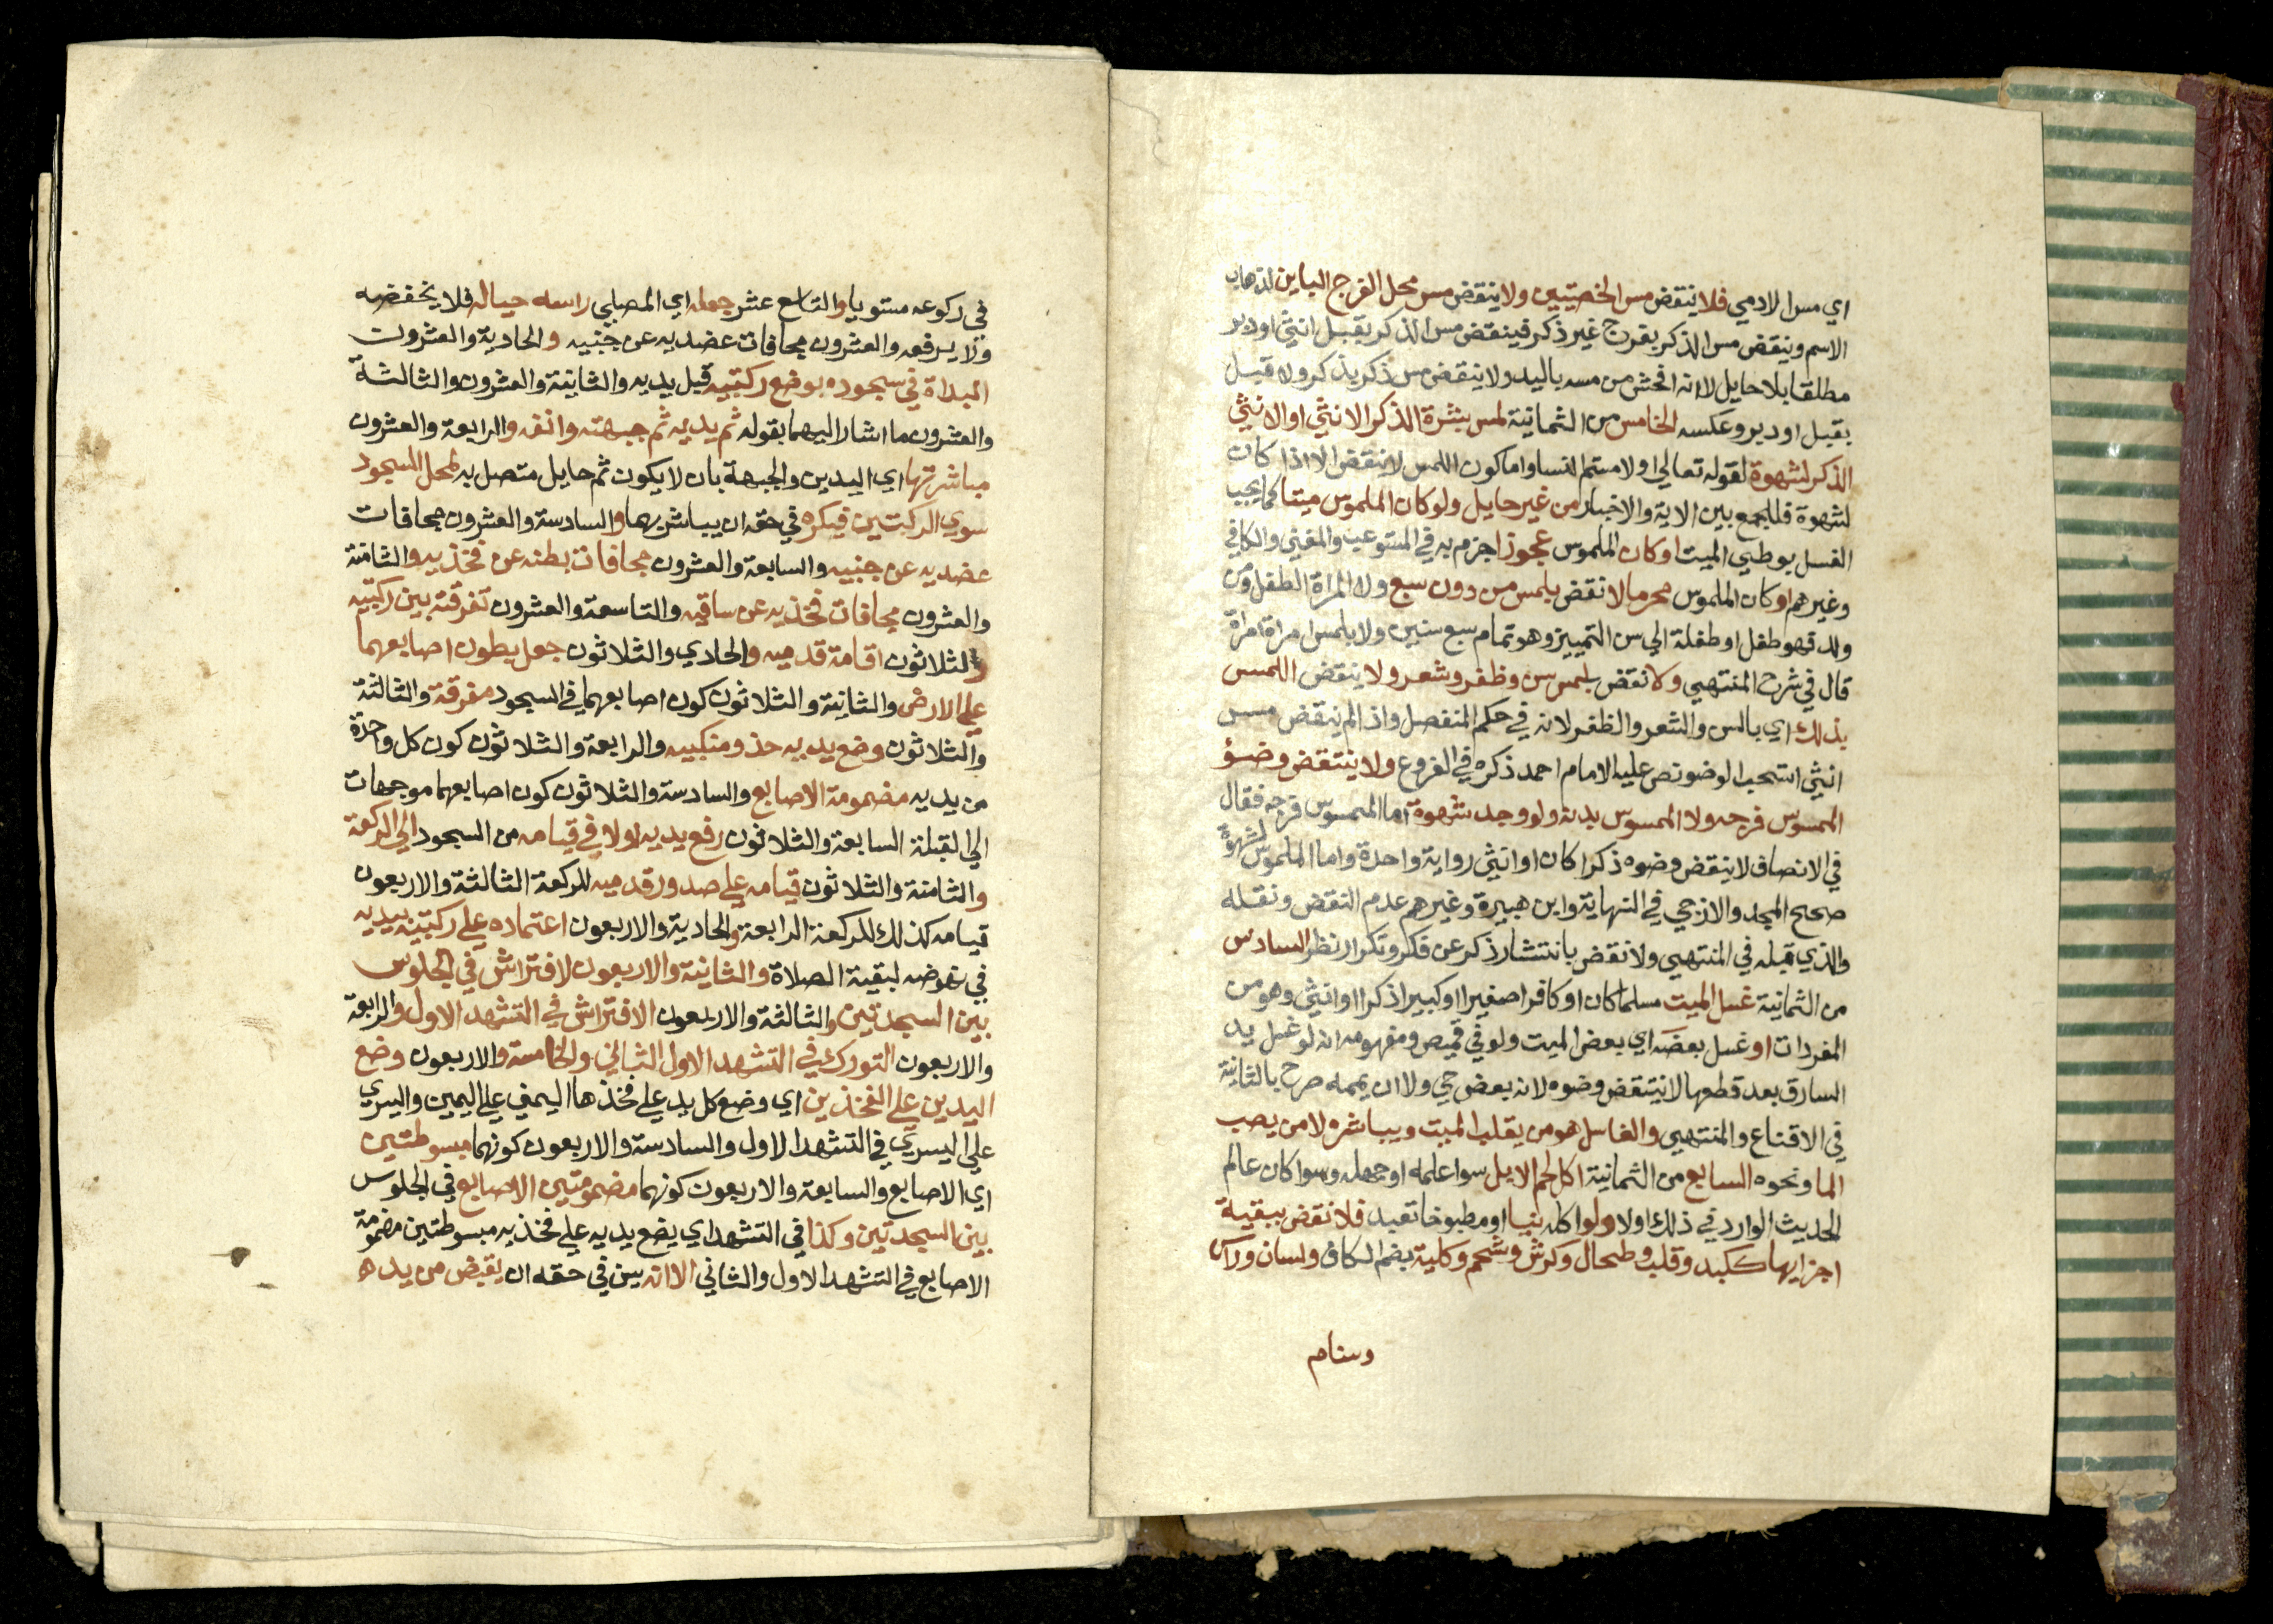 اي مس الادمي فلا ينقض مس الخصيتين ولا ينقض مس محل الفرج الباين لذهاب
الاسم وينقض مس الذكر بفرج غير ذكر فينقض مس الذكر بقبل انثي او دبر
مطلقا بلا حايل لانه افحش من مسه باليد ولا ينقض مس ذكر بذكر ولا قبل
بقبل او دبر وعكسه الخامس من الثمانية لمس بشرة الذكر الانثي او الانثي
الذكر لشهوة لقوله تعالي او لامستم النسا واما كون اللمس لا ينقض الا اذا كان
لشهوة فللجمع بين الاية والاخبار من غير حايل ولو كان الملموس ميتا كما يجب
الغسل بوطي الميت او كان الملموس عجوزا جزم به في المستوعب والمغني والكافي
وغيرهم او كان الملموس محرما لا نقض بلمس من دون سبع ولا المراة الطفل ومن
ولد فهو طفل او طفلة الي سن التمييز وهو تمام سبع سنين ولا بلمس امراة امراة
قال في شرح المنتهي ولا نقض بلمس سن وظفر وشعر ولا ينقض اللمس
بذلك اي بالسن والشعر والظفر لانه في حكم المنفصل واذا لم ينقض مس
انثي استحب الوضو نص عليه الامام احمد ذكره في الفروع ولا ينتقض وضؤ
الممسوس فرجه ولا الممسوس بدنه ولو وجد شهوة اما الممسوس فرجه فقال
في الانصاف لا ينقض وضوه ذكرا كان او انثي رواية واحدة واما الملموس لشهوة
صحح المجد والازجي في النهاية وابن هبيرة وغيرهم عدم النقض ونقله
والذي قبله في المنتهي ولا نقض بانتشار ذكر عن فكر وتكرار نظر السادس
من الثمانية غسل الميت مسلما كان او كافرا صغيرا او كبيرا ذكرا او انثي وهو من
المفردات او غسل بعضه اي بعض الميت ولو في قميص ومفهومه انه لو غسل يد
السارق بعد قطعها لا ينتقض وضوه لانه بعض حي ولا ان يممه صرح بالثانية
في الاقناع والمنتهي والغاسل هو من يقلب الميت ويباشره لا من يصب
الما ونحوه السابع من الثمانية اكل لحم الابل سوا علمه او جهله وسوا كان عالم
الحديث الوارد في ذلك اولا ولو اكله نيا او مطبوخا تعبد فلا نقض ببقية
اجزايها ككبد وقلب وطحال وكرش وشحم وكلية بضم الكاف ولسان وراس
وسنام
في ركوعه مستويا والتاسع عشر جعله اي المصلي راسه حياله فلا يخفضه
ولا يرفعه والعشرون مجافات عضديه عن جنبيه والحادية والعشرون
البداة في سجوده بوضع ركبتيه قبل يديه والثانية والعشرون والثالثة
والعشرون ما اشار اليهما بقوله ثم يديه ثم جبهته وانفه والرابعة والعشرون
مباشرتها اي اليدين والجبهة بان لا يكون ثم حايل متصل به لمحل السجود
سوي الركبتين فيكره في حقه ان يباشر بهما والسادسة والعشرون مجافات
عضديه عن جنبيه والسابعة والعشرون مجافات بطنه عن فخذيه والثامنة
والعشرون مجافات فخذيه عن ساقيه والتاسعة والعشرون تفرقته بين ركبتيه
والثلاثون اقامة قدميه والحادي والثلاثون جعل بطون اصابعهما
علي الارض والثانية والثلاثون كون اصابعهما في السجود مفرقة والثالثة
والثلاثون وضع يديه حذو منكبيه والرابعة والثلاثون كون كل واحدة
من يديه مضمومة الاصابع والسادسة والثلاثون كون اصابعهما موجهات
الي القبلة السابعة والثلاثون رفع يديه اولا في قيامه من السجود الي الركعة
والثامنة والثلاثون قيامه علي صدور قدميه للركعة الثالثة والاربعون
قيامه كذلك للركعة الرابعة والحادية والاربعون اعتماده علي ركبتيه بيديه
في نهوضه لبقية الصلاة والثانية والاربعون لافتراش في الجلوس
بين السجدتين والثالثة والاربعون الافتراش في التشهد الاول والرابعة
والاربعون التورك في التشهد الاول الثاني والخامسة والاربعون وضع
اليدين علي الفخذين اي وضع كل يد علي فخذها اليمني علي اليمين واليسري
علي اليسري في التشهد الاول والسادسة والاربعون كونهما مبسوطتين
اي الاصابع والسابعة والاربعون كونهما مضمومتين الاصابع في الجلوس
بين السجدتين وكذا في التشهد اي يضع يديه علي فخذيه مبسوطتين مضمومة
الاصابع في التشهد الاول والثاني الا انه يسن في حقه ان يقبض من يده